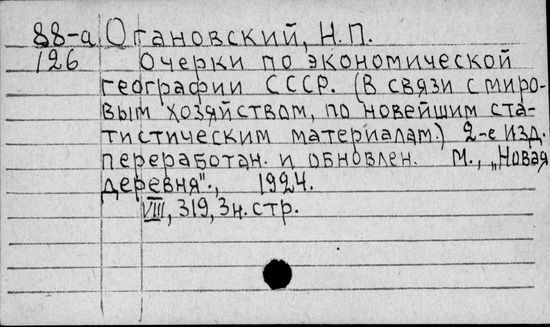 88-а Огановский, Н.П.
126 Очерки по экономической
географии СССР. (В связи с миро-
вым хозяйством, по новейшим ста-
тистическим материалам.) 2-е изд.
переработан. и обновлен. М., „Новая
деревня"., 1924.
VIII, 319, 3 н. стр.